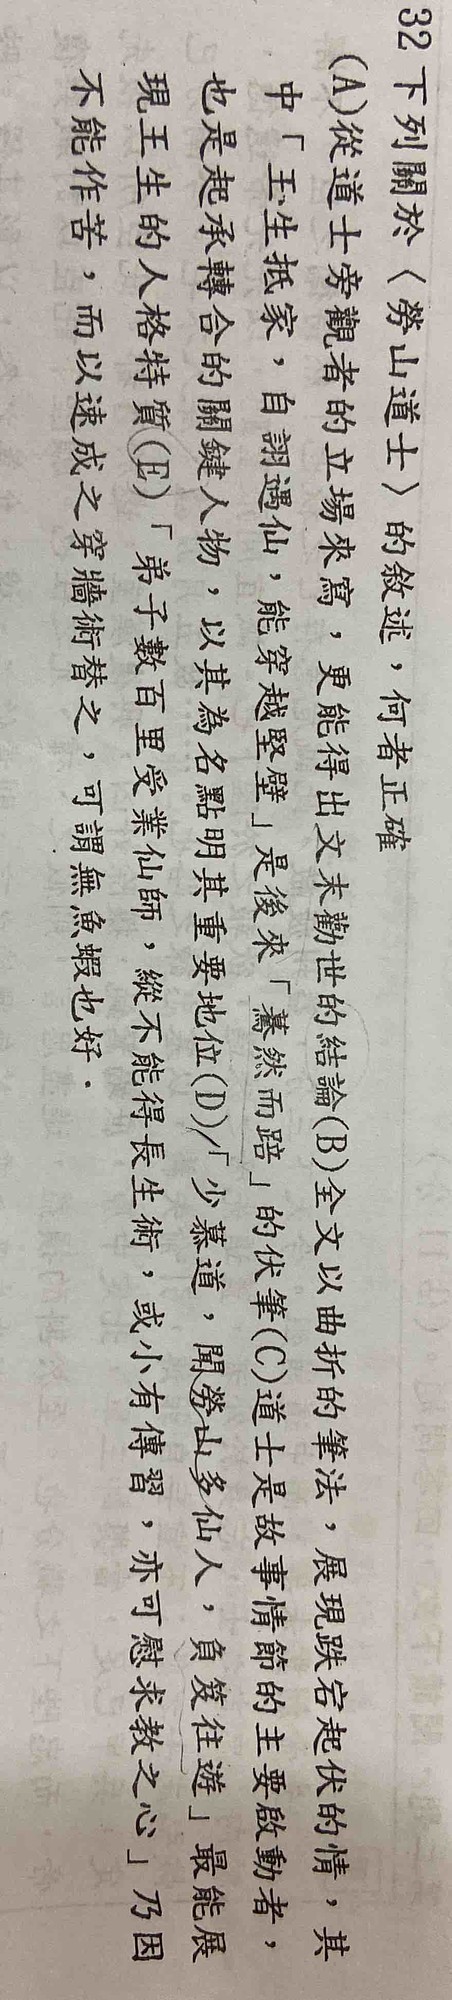 32 下列關於〈勞山道士〉的敘述，何者正確
(A)從道士旁觀者的立場來寫，更能得出文末勸世的結論(B)全文以曲折的筆法，展現跌宕起伏的情，其
中「王生抵家，自詡遇仙，能穿越堅壁」是後來「驀然而踣」的伏筆(C)道士是故事情節的主要啟動者，
也是起承轉合的關鍵人物，以其為名點明其重要地位(D)「少慕道，聞勞山多仙人，負笈往遊」最能展
現王生的人格特質(E)「弟子數百里受業仙師，縱不能得長生術，或小有傳習，亦可慰求教之心」乃因
不能作苦，而以速成之穿牆術替之，可謂無魚蝦也好．